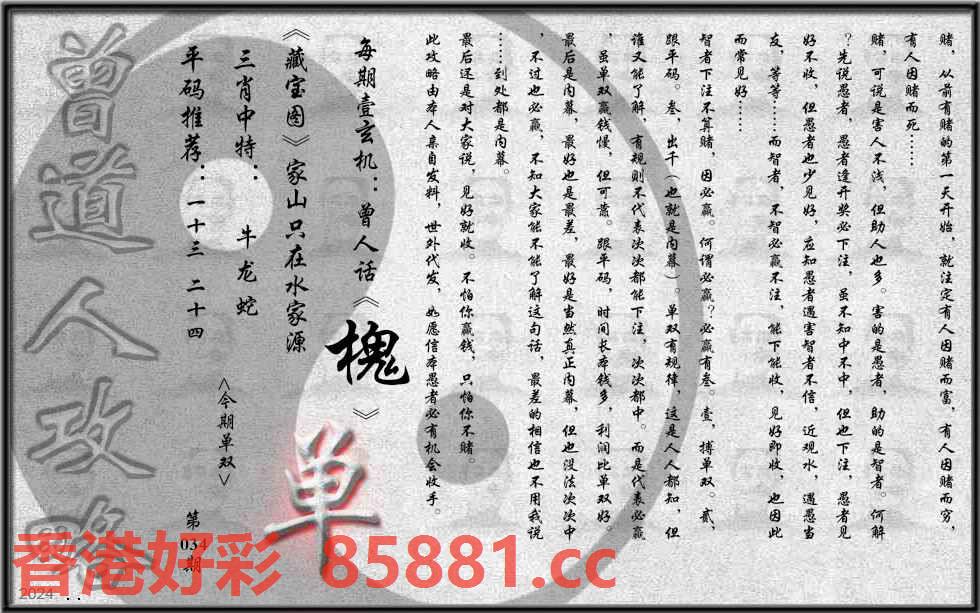 赌，从前有赌的第一天开始，就注定有人因赌而富，有人因赌而穷，
有人因赌而死……
赌，可说是害人不浅，但助人也多。害的是愚者，助的是智者。何解
？先说愚者，愚者逢开奖必下注，虽不知中不中，但也下注，愚者见
好不收，但愚者也少见好，应知愚者遇害智者不信，近观水，遇愚当
友，等等……而智者，不智必赢不注，能下能收，见好即收，也因此
而常见好……
智者下注不算赌，因必赢。何谓必赢？必赢有叁。壹，搏单双。贰，
跟平码。叁，出千（也就是内幕）。单双有规律，这是人人都知，但
谁又能了解，有规则不代表次次都能下注，次次都中。而是代表必赢
，虽单双赢钱慢，但可靠。跟平码，时间长本钱多，利润比单双好。
最后是内幕，最好也是最差，最好是当然真正内幕，但也没法次次中
，不过也必赢，不知大家能不能了解这句话，最差的相信也不用我说
……到处都是内幕。
最后还是对大家说，见好就收。不怕你赢钱，只怕你不赌。
此攻略由本人亲自发料，世外代发，如愿信本愚者必有机会收手。
每期壹玄机：曾人话《槐》
《藏宝图》家山只在水家源
三肖中特：牛龙蛇
平码推荐：一十三 二十四
<今期单双>
单
第034期
曾道人攻略
香港好彩 85881.cc
2024